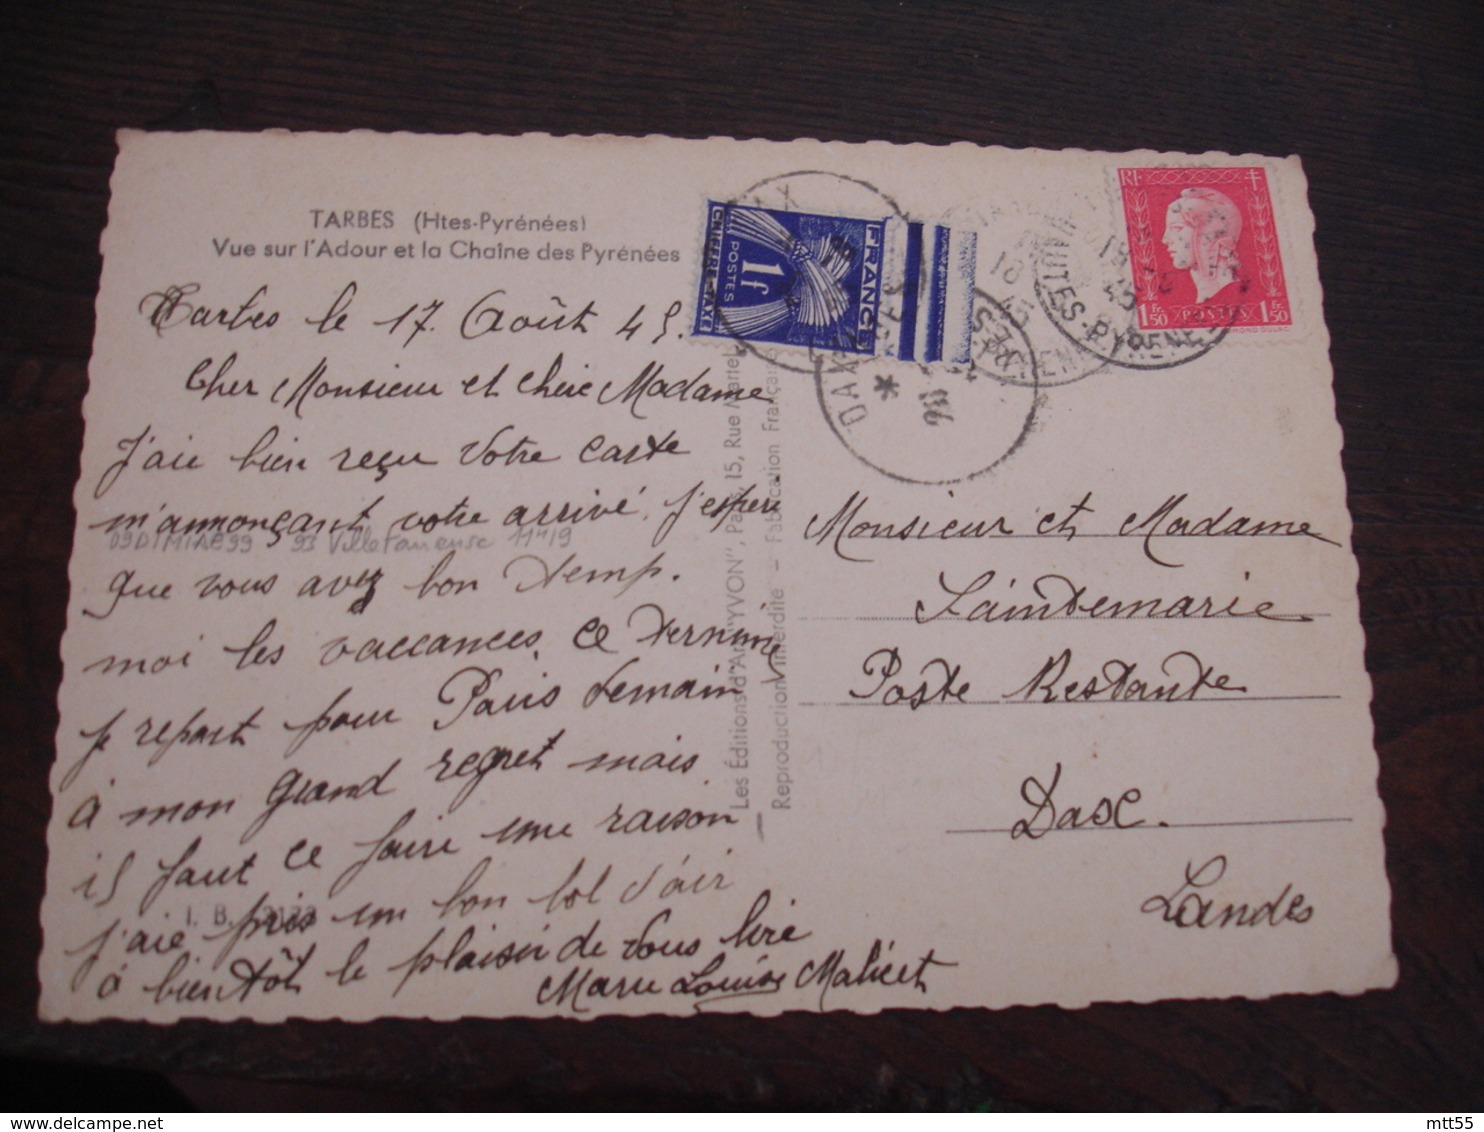 TARBES (Htes-Pyrénées)
Vue sur l'Adour et la Chaîne des Pyrénées
Tarbes le 17. Août 45.
Cher Monsieur et chère Madame
J'aie bien reçu votre carte
m'annonçant votre arrivé. J'espère
09DIMIAC99 93 Villetaneuse 11419
que vous avez bon temp.
moi les vaccances ce termine
je repart pour Paris demain
à mon grand regret mais
il faut ce faire une raison
j'aie pris un bon bol d'air
I. B.
à bientôt le plaisir de vous lire
Marie Louise Malicet
Les Éditions d'Art "YVON", Paris, 15, Rue Martel
Reproduction Interdite — Fabrication Française
FRANCE
1F
POSTES
CHIFFRE-TAXE
RF
1Fr.50
POSTES
1Fr.50
DAX
HAUTES-PYRENEES
18
45
Monsieur et Madame
Saintemarie
Poste Restante
Dax.
Landes
mtt55